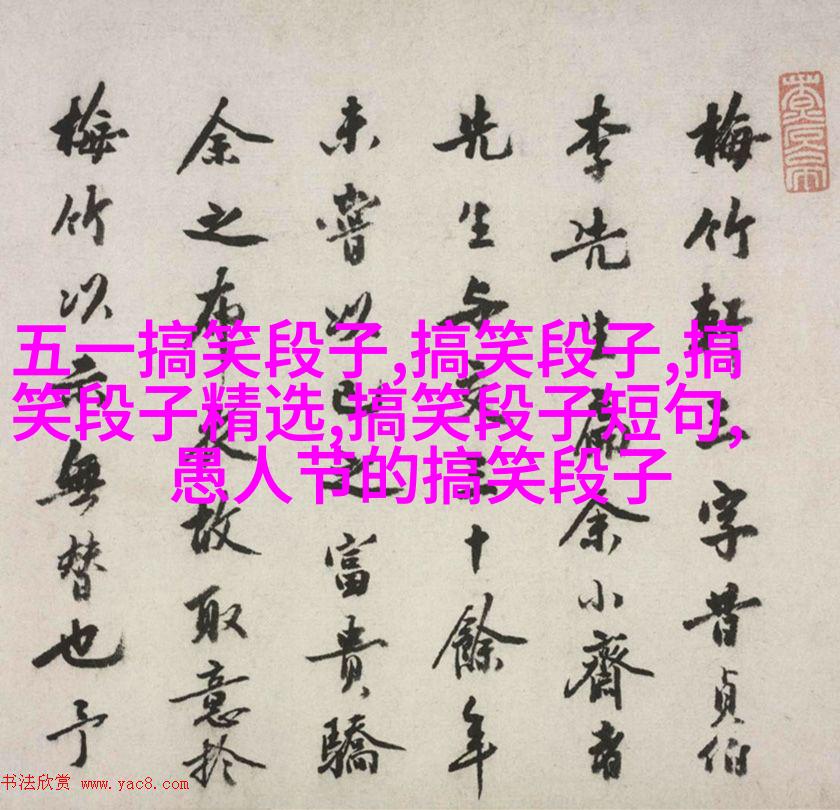 梅竹軒三字昔貞伯
李先生余小齋者
先生與交三十餘年
未嘗以已之富貴驕
余之布衣故取意於
梅竹以示無替也予
五一搞笑段子,搞笑段子,搞
笑段子精选,搞笑段子短句,
愚人节的搞笑段子
书法欣赏 www.yac8.com